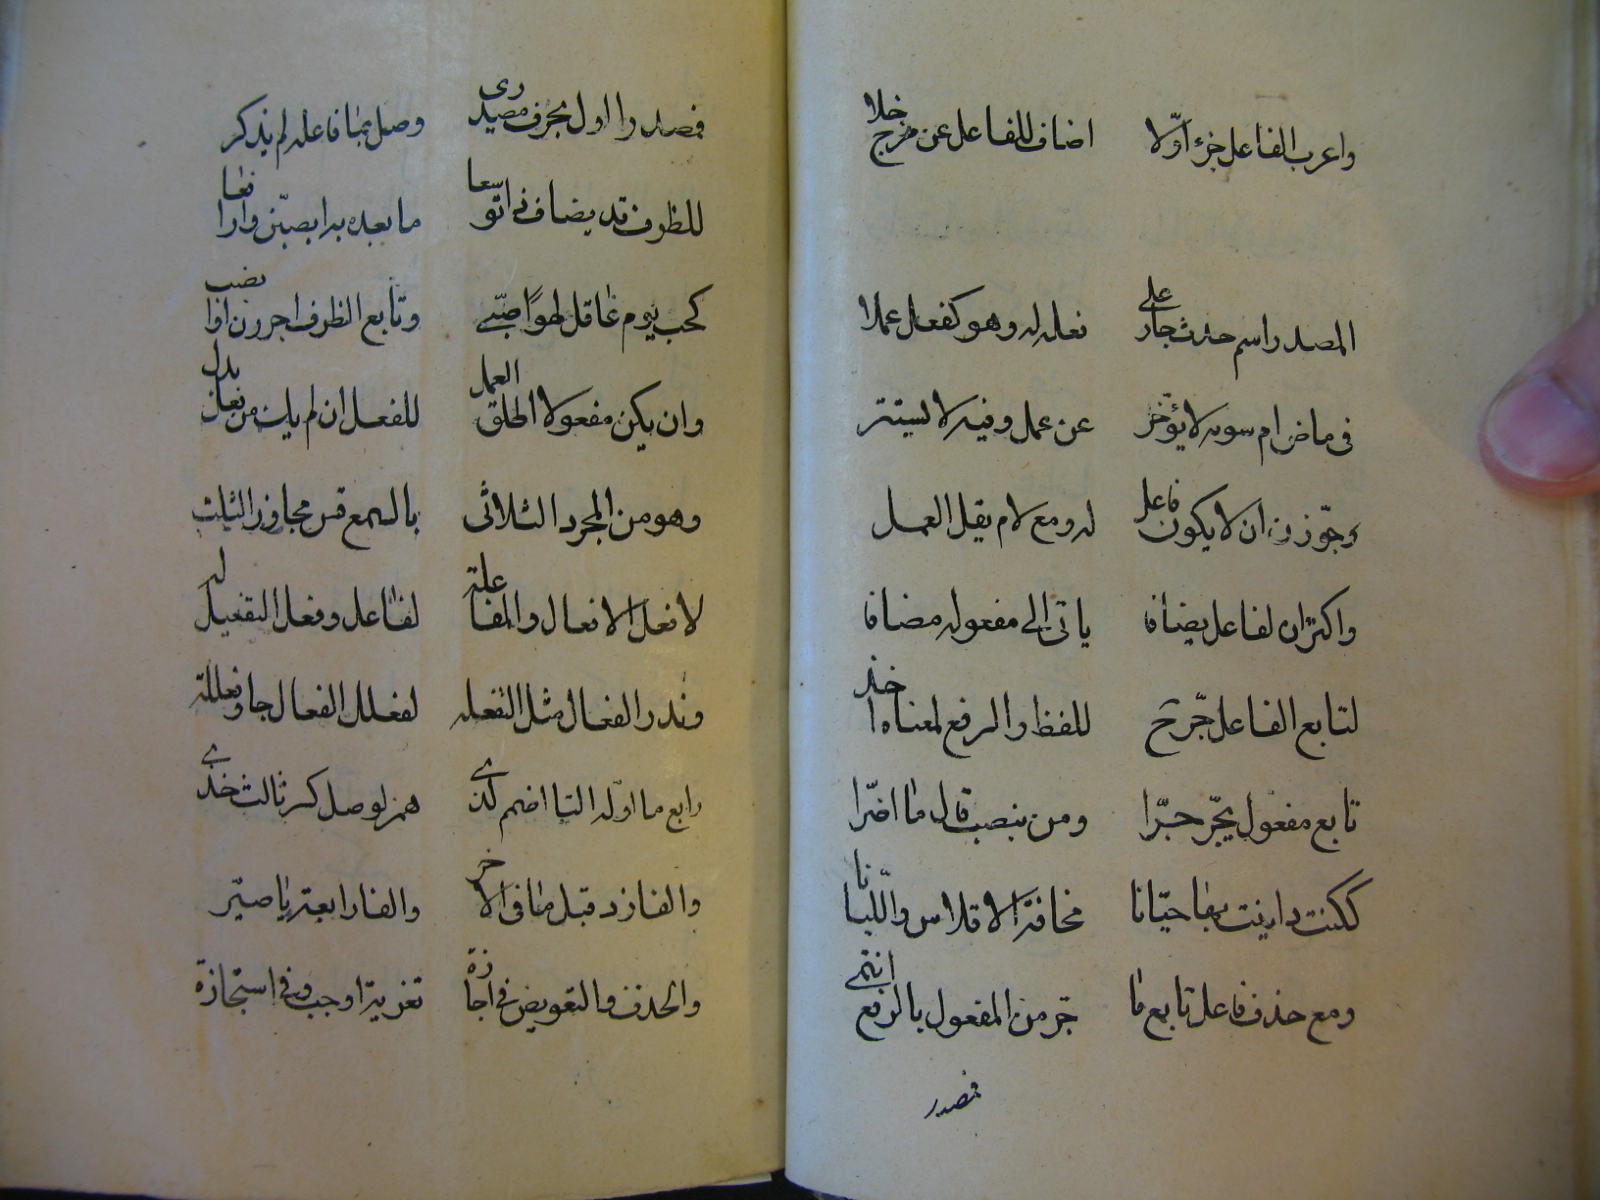 واعرب الفاعل جزء اوّلا اضاف للفاعل عن مزج خلا
المصدر اسم حدث جار على فعله له وهو كفعل عملا
فى ماض ام سويه لا يؤخر عن عمل وفيه لا يستتر
وجوزن ان لا يكون فاعل له ومع لام يقل العمل
واكثر ان لفاعل يضافا ياتى الى مفعوله مضافا
لتابع الفاعل جر للفظ والرفع لمعناه اخذ
تابع مفعول يجر جرا ومن بنصب قال ما اضرا
ككنت داينت بها حيانا مخافة الافلاس والليانا
ومع حذف فاعل تابع ما جر من المفعول بالرفع انتمى
فصدر
فصدر اول بحرف مصدرى وصل بما فاعله لم يذكر
للظرف قد يضاف اتوسعا ما بعده بدا بصبن وارفعا
كحب يوم عاقل لهوا صبى وتابع الظرف اجررن او انصب
وان يكن مفعولا اطلق العمل للفعل ان لم يك من فعل بدل
وهو من المجرد الثلاثى بالسمع قس مجاوز الثلث
لافعل الافعال والمفاعلة لفاعل وفعل التفعيل له
وندر الفعال مثل التفعله لفعلل الفعلال جا وفعلله
رابع ما اوله التا اضمم همز لوصل كسر ثالث خذى
والفا زد قبل ما فى الاخر والفا رابعة يا صير
والحذف والتعويض فى اجازة تعزية اوجب وفى استجازة